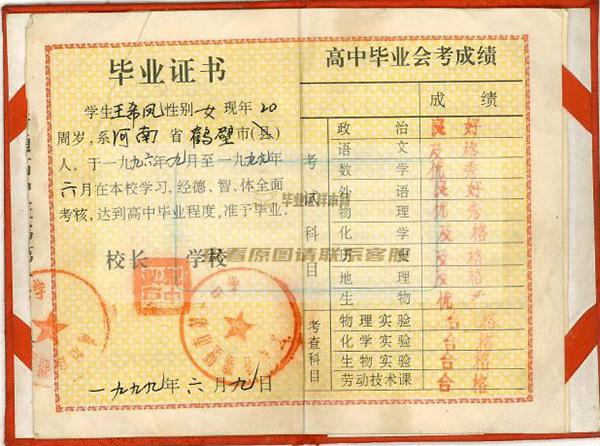 毕业证书
学生王希凤性别女现年20
周岁，系河南省鹤壁市（县）
人。于一九九六年九月至一九九九年
六月在本校学习，经德、智、体全面
考核，达到高中毕业程度，准予毕业。
校长 学校
一九九九年六月九日
高中毕业会考成绩
成绩
考试科目
政治 良好
语文 及格
数学 优秀
外语 良好
物理 优秀
化学 及格
历史 及格
地理 及格
生物 优
考查科目
物理实验 合格
化学实验 合格
生物实验 合格
劳动技术课 合格
毕业证样本网
查看原图请联系客服